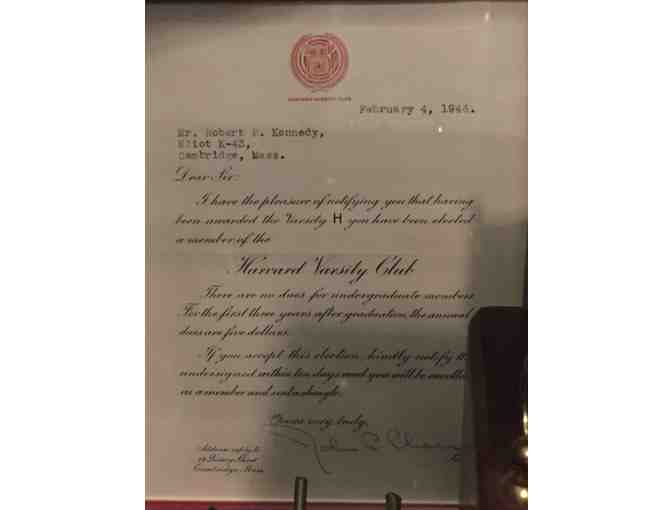 HARVARD VARSITY CLUB
February 4, 1944.
Mr. Robert F. Kennedy,
Eliot K-43,
Cambridge, Mass.
Dear Sir:
I have the pleasure of notifying you that having
been awarded the Varsity H you have been elected
a member of the
Harvard Varsity Club
There are no dues for undergraduate members
For the first three years after graduation, the annual
dues are five dollars.
If you accept this election kindly notify
undersigned within ten days and you will be
as a member and sent a shingle.
Yours very truly,
John P. Chase
Address reply to
Cambridge, Mass